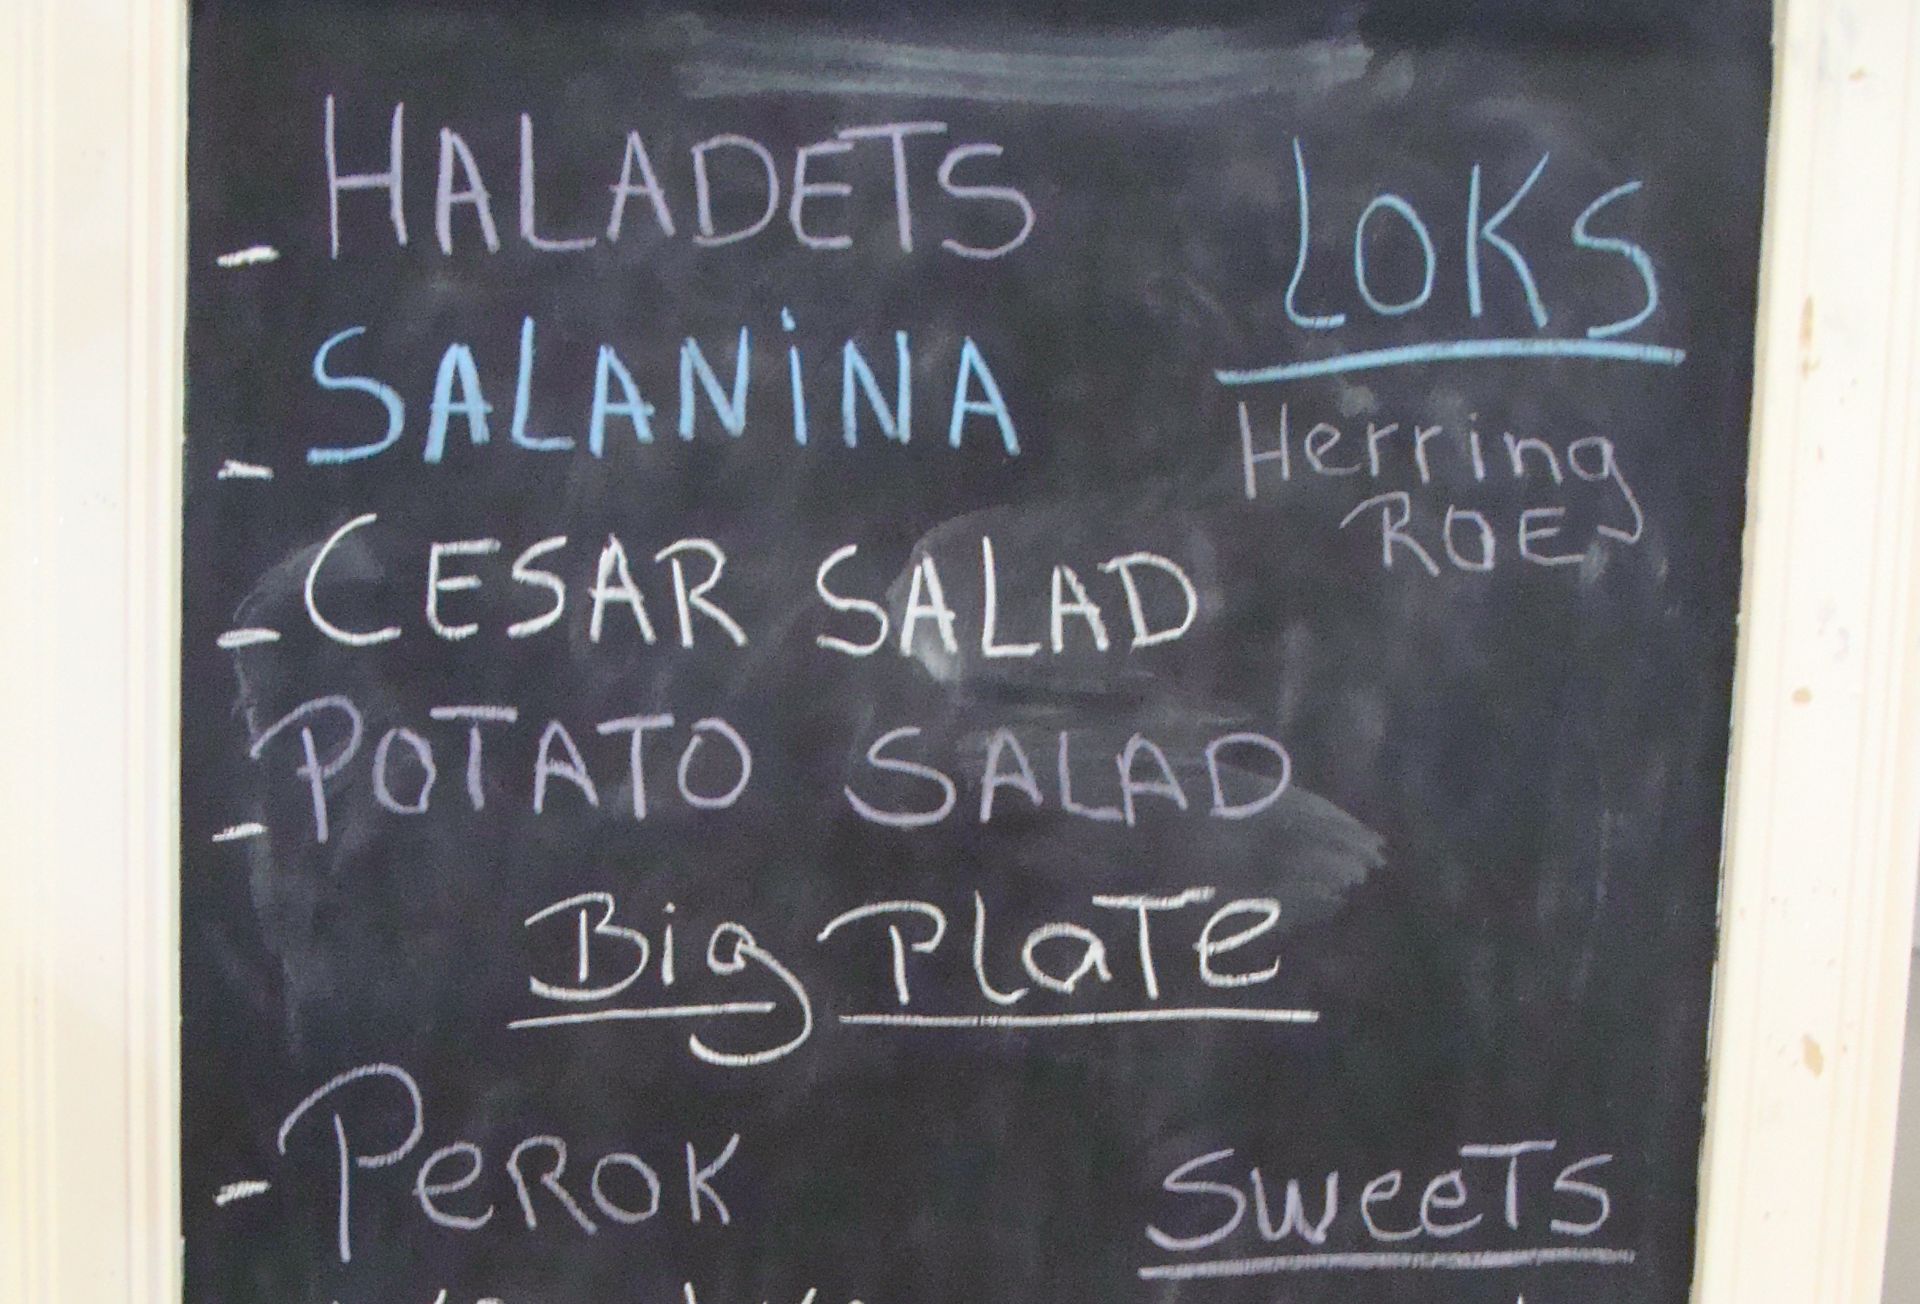 - HALADETS
LOKS
- SALANiNA
Herring
ROE
- CESAR SALAD
- POTATO SALAD
Big PlaTe
- PeROK
SweeTs